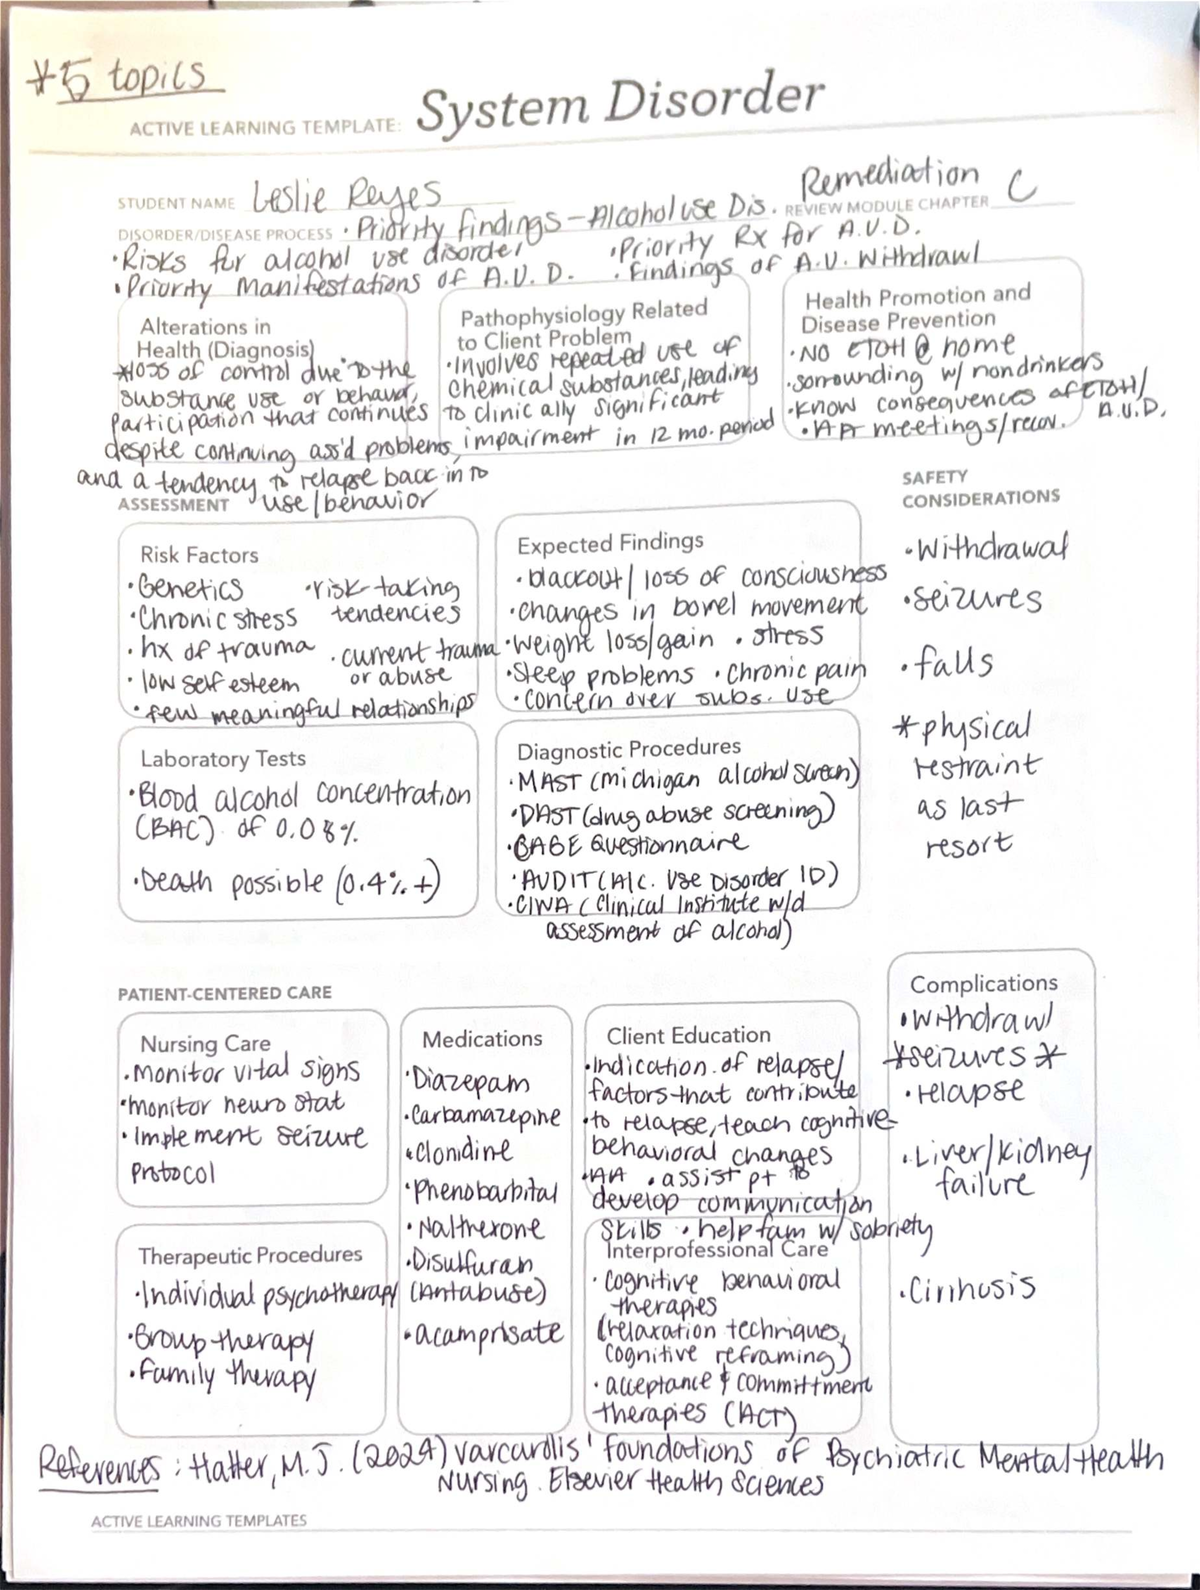 *5 topics
ACTIVE LEARNING TEMPLATE: System Disorder
STUDENT NAME Leslie Reyes
Remediation C
REVIEW MODULE CHAPTER
DISORDER/DISEASE PROCESS • Priority findings - Alcohol use Dis.
• Risks for alcohol use disorder • Priority Rx for A.U.D.
• Priority Manifestations of A.U.D. • Findings of A.U. Withdrawl
Alterations in
Health (Diagnosis)
*loss of control due to the
substance use or behavior,
participation that continues
despite continuing ass'd problems,
and a tendency to relapse back into
use/behavior
Pathophysiology Related
to Client Problem
• Involves repeated use of
chemical substances, leading
to clinically significant
impairment in 12 mo. period
Health Promotion and
Disease Prevention
• NO ETOH @ home
• sorrounding w/ nondrinkers
• know consequences of ETOH/
A.U.D.
• AA meetings/recov.
ASSESSMENT
SAFETY
CONSIDERATIONS
• Withdrawal
• seizures
• falls
* physical
restraint
as last
resort
Risk Factors
• Genetics • risk-taking
tendencies
• Chronic stress
• hx of trauma • current trauma
or abuse
• low self esteem
• few meaningful relationships
Expected Findings
• blackout/ loss of consciousness
• changes in bowel movement
• weight loss/gain • stress
• Sleep problems • Chronic pain
• concern over subs. use
Laboratory Tests
• Blood alcohol concentration
(BAC) of 0.08%
• Death possible (0.4% +)
Diagnostic Procedures
• MAST (michigan alcohol screen)
• DAST (drug abuse screening)
• CAGE Questionnaire
• AUDIT (Alc. Use Disorder ID)
• CIWA (Clinical Institute w/d
assessment of alcohol)
PATIENT-CENTERED CARE
Nursing Care
• Monitor vital signs
• monitor neuro stat
• Implement seizure
protocol
Medications
• Diazepam
• Carbamazepine
• Clonidine
• Phenobarbital
• Naltrexone
• Disulfuran
(Antabuse)
• acamprisate
Client Education
• Indication of relapse/
factors that contribute
• to relapse, teach cognitive-
behavioral changes
• AA • assist pt to
develop communication
skills • help fam w/ sobriety
Complications
• Withdrawl
*seizures*
• relapse
• Liver/kidney
failure
• Cirrhosis
Therapeutic Procedures
• Individual psychotherapy
• Group therapy
• Family therapy
Interprofessional Care
• Cognitive behavioral
therapies
(relaxation techniques,
cognitive reframing)
• acceptance & committment
therapies (ACT)
References: Halter, M.J. (2024) varcarolis' foundations of Psychiatric Mental Health
Nursing. Elsevier Health Sciences
ACTIVE LEARNING TEMPLATES